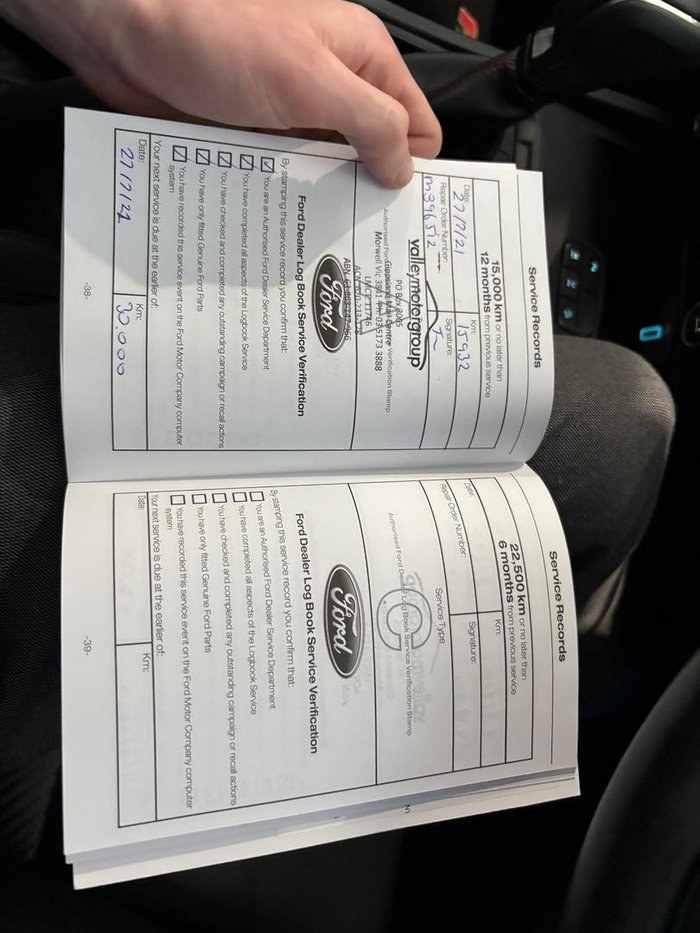 Service Records
15,000 km or no later than
12 months from previous service
Date: 27/7/21
Km: 5932
Repair Order Number:
Signature:
valleymotorgroup
PO Box 8005
Morwell Vic 3841 Ph: 03 5173 3888
LMCT: 11746
Ford
Ford Dealer Log Book Service Verification
By stamping this service record you confirm that:
You are an Authorised Ford Dealer Service Department
You have completed all aspects of the Logbook Service
You have checked and completed any outstanding campaign or recall actions
You have only fitted Genuine Ford Parts
You have recorded this service event on the Ford Motor Company computer
system
Your next service is due at the earlier of:
Date:
Km: 30,000
-38-
Service Records
22,500 km or no later than
6 months from previous service
Date:
Km:
Repair Order Number:
Signature:
Service Type
C
Authorised Ford Dealer Log Book Service Verification Stamp
Ford
Ford Dealer Log Book Service Verification
By stamping this service record you confirm that:
You are an Authorised Ford Dealer Service Department
You have completed all aspects of the Logbook Service
You have checked and completed any outstanding campaign or recall actions
You have only fitted Genuine Ford Parts
You have recorded this service event on the Ford Motor Company computer
system
Your next service is due at the earlier of:
Date:
Km:
-39-